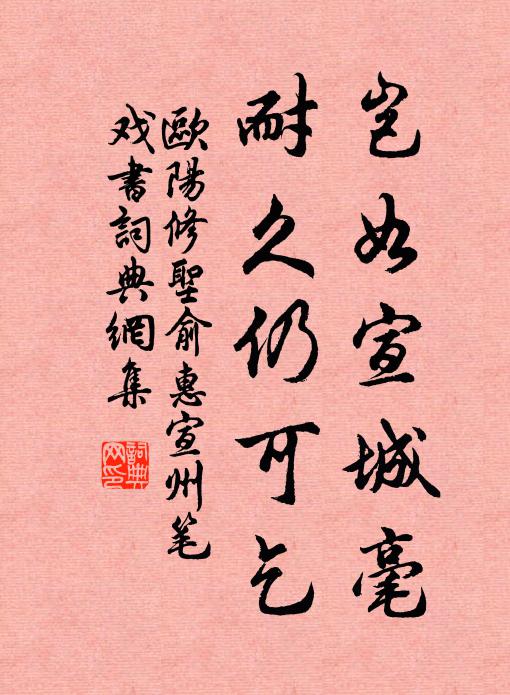 岂如宣城毫
耐久仍可乞
歐陽修聖俞惠宣州笔
戏書詞典網集
詞典網印